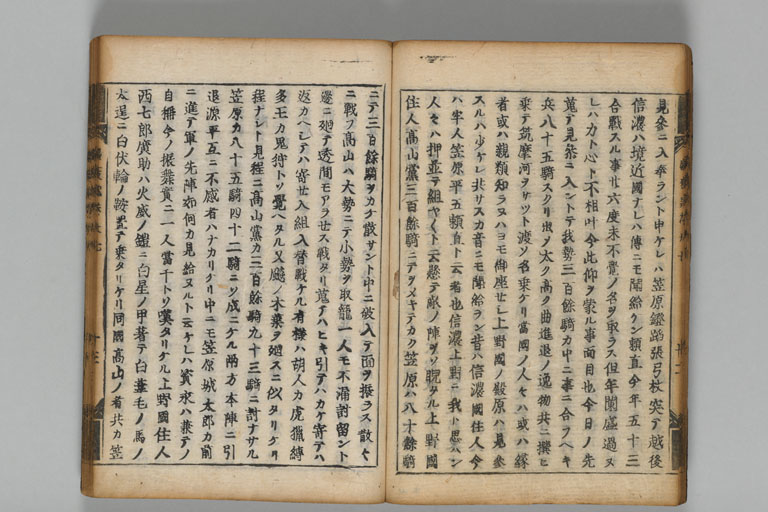 見參ニ入奉ラント申ケレハ笠原鐙踏張弓杖突テ越後
信濃ハ境近國ナレハ傳ニモ聞給ラン頼直今年五十三
合戰スル事廿六度未不覺ノ名ヲ取ラス但年闌盛過ヌ
レハ力ト心ト不相叶今此仰ヲ蒙ル事面目也今日ノ先
蒐テ見參ニ入ントテ我勢三百餘騎カ中ニ事ニ合フヘキ
兵八十五騎スクリ出メ太ク高ク曲進退ノ逸物共ニ撰ヒ
乘テ筑摩河ヲサツト渡ソ名乘ケリ當國ノ人々ハ或ハ縁
者或ハ親類知ラヌハヨモ御座セシ上野國ノ殿原ハ見參
スルハ少ケレ共サスカ音ニモ聞給ラン昔ハ信濃國住人今
ハ牢人笠原平五頼直ト云者也信濃上野ニ我ト思ハン
人々ハ押並テ組ヤクト云懸テ敵ノ陣ヲソ睨タル上野國
住人高山黨三百餘騎ニテヲメキテカク笠原ハ八十餘騎
ニテ三百餘騎ヲカケ散サント中ニ破入テ面ヲ振ラス散々
ニ戰フ高山ハ大勢ニテ小勢ヲ取籠一人モ不漏討留ント
邊ニ廻テ透間モアラセス戰タリ蒐テハヒキ引テハカケ寄テハ
返カヘシテハ寄セ入組入替戰ケル有樣ハ胡人カ虎獵縛
多王カ鬼狩トソ覺ヘタル又飈ノ木葉ヲ廻スニ似タリケリ
程ナシト見程ニ高山黨カ三百餘騎九十三騎ニ討ナサル
笠原カ八十五騎四十二騎ニソ成ニケル兩方本陣ニ引
退源平互ニ不感者ハナカリケリ中ニモ笠原城太郎カ前
ニ進テ軍ノ先陣如何カ見給ヌルト云ケレハ資永ハ兼テノ
自稱今ノ振舞實ニ一人當千トソ嘆タリケル上野國住人
西七郎廣助ハ火威ノ鎧ニ白星ノ甲著テ白葦毛ノ馬ノ
太逞ニ白伏輪ノ鞍置テ乘タリケリ同國高山ノ者共カ笠